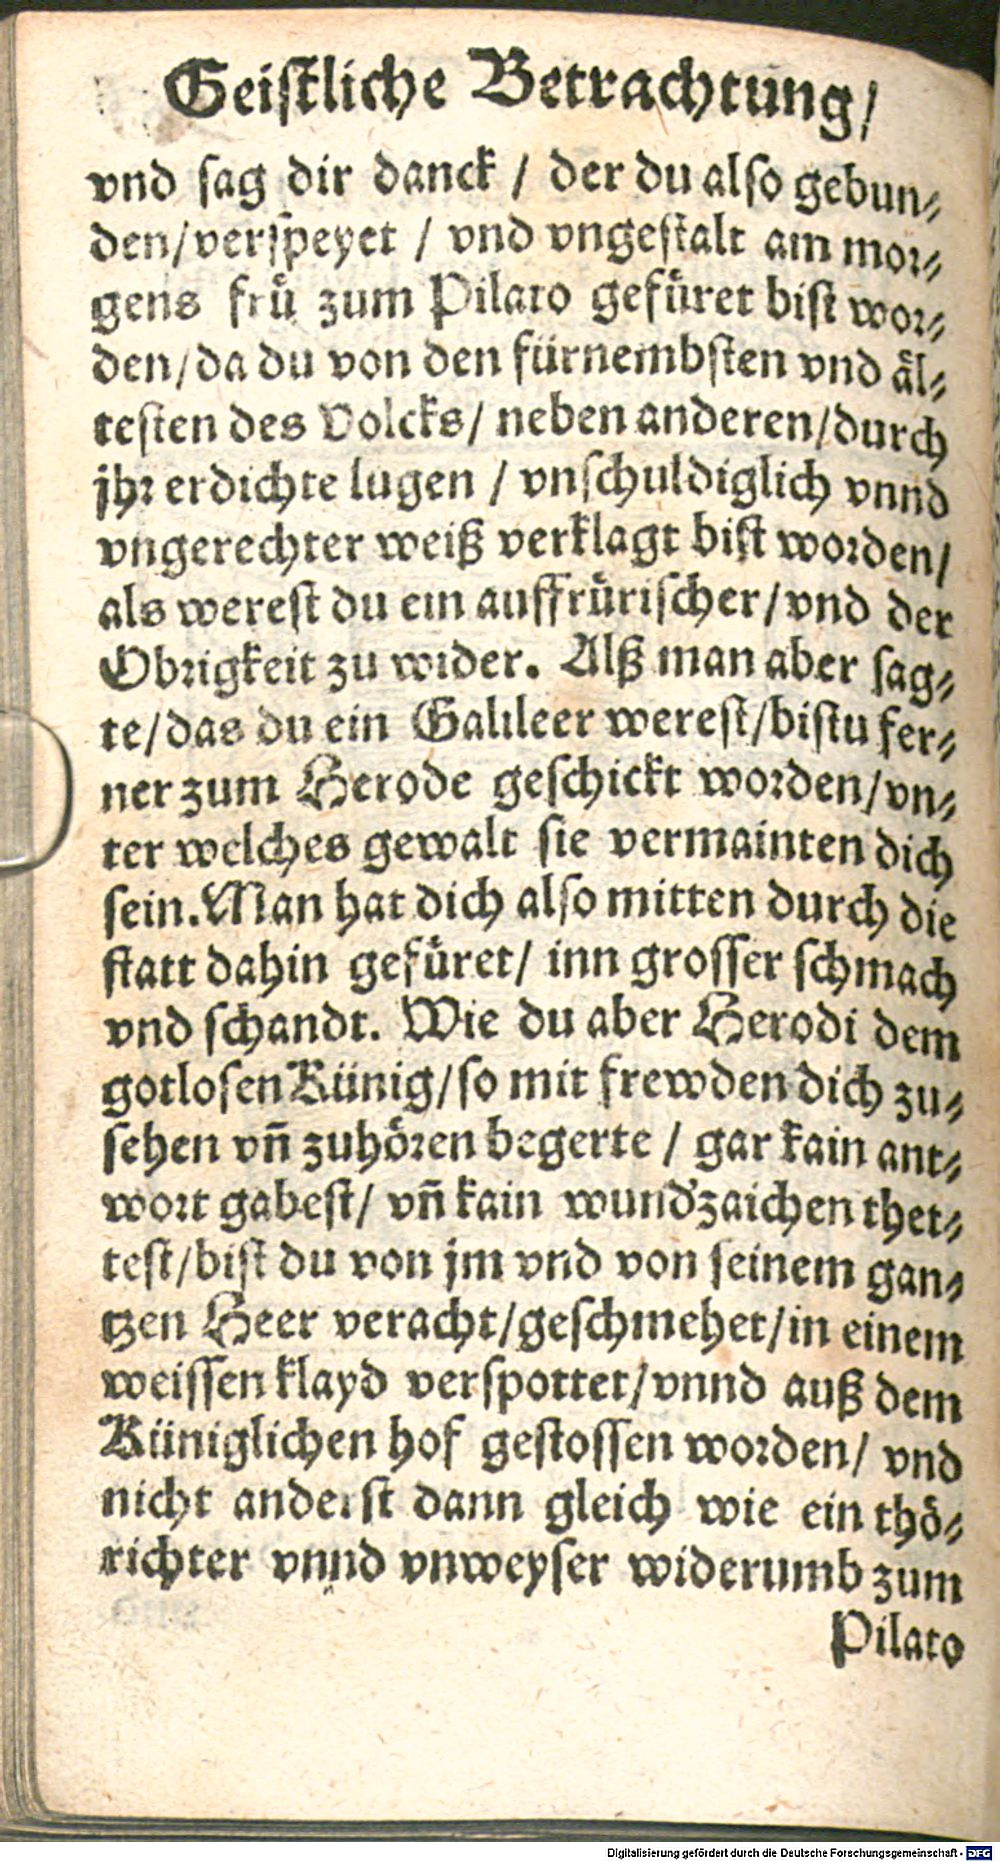 Geistliche Betrachtung/
vnd sag dir danck / der du also gebun⸗
den/verspeyet / vnd vngestalt am mor⸗
gens fruͤ zum Pilato gefuͤret bist wor⸗
den/da du von den fürnembsten vnd aͤl⸗
testen des Volcks/ neben anderen/durch
jhr erdichte lugen / vnschuldiglich vnnd
vngerechter weiß verklagt bist worden/
als werest du ein auffruͤrischer/vnd der
Obrigkeit zu wider. Alß man aber sag⸗
te/das du ein Galileer werest/bistu fer⸗
ner zum Herode geschickt worden/vn⸗
ter welches gewalt sie vermainten dich
sein. Man hat dich also mitten durch die
statt dahin gefuͤret/ inn grosser schmach
vnd schandt. Wie du aber Herodi dem
gotlosen Künig/so mit frewden dich zu⸗
sehen vñ zuhoͤren begerte / gar kain ant⸗
wort gabest/ vñ kain wundʼzaichen thet⸗
test/bist du von jm vnd von seinem gan⸗
tzen Heer veracht/geschmehet/in einem
weissen klayd verspottet/vnnd auß dem
Küniglichen hof gestossen worden/ vnd
nicht anderst dann gleich wie ein thoͤ⸗
richter vnnd vnweyser widerumb zum
Pilato
Digitalisierung gefördert durch die Deutsche Forschungsgemeinschaft - DFG